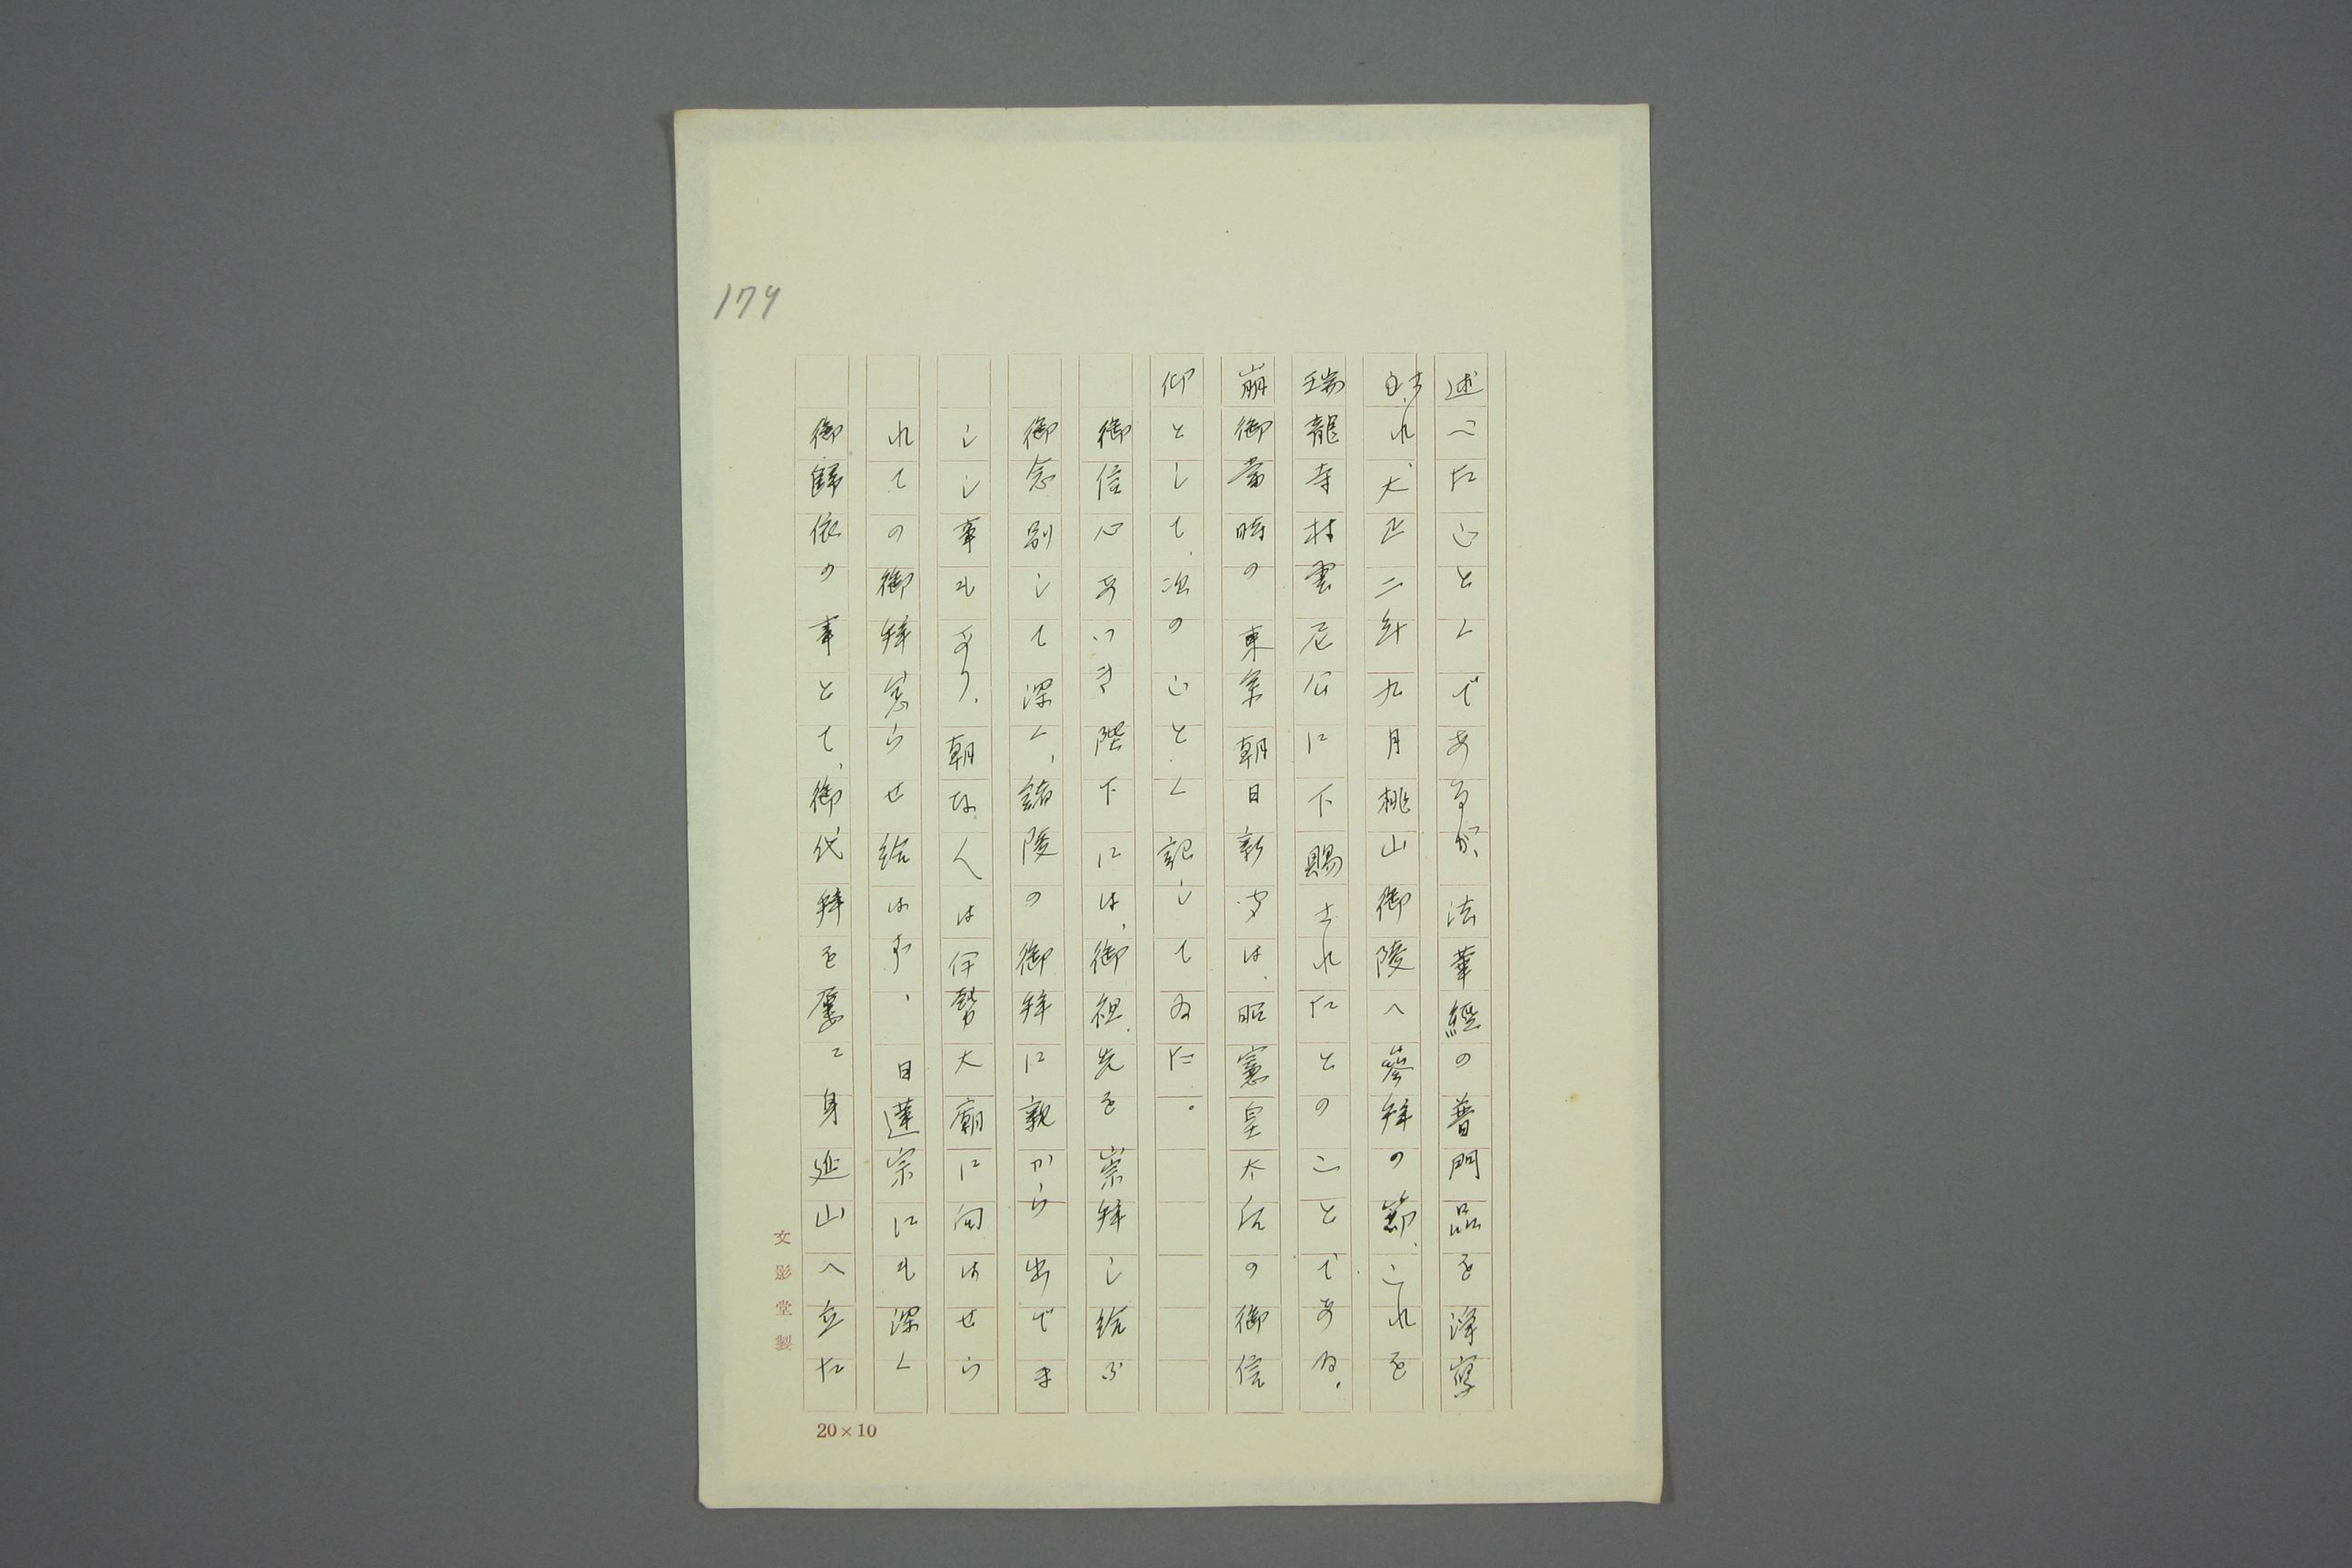 174
述べたごとくであるが、法華經の普門品を淨寫
され、大正二年九月桃山御陵へ參拜の節、これを
瑞龍寺村雲尼公に下賜されたとのことである。
崩御當時の東京朝日新聞は、昭憲皇太后の御信
仰として、次のごとく記してゐた。
御信心あつき陛下には、御祖先を崇拜し給ふ
御念別して深く、諸陵の御拜に親から出でま
しし事もあり、朝な〱は伊勢大廟に向はせら
れての御拜怠らせ給はず、日蓮宗にも深く
御歸依の事とて、御代拜を屢〻身延山へ立た
文影堂製
20×10